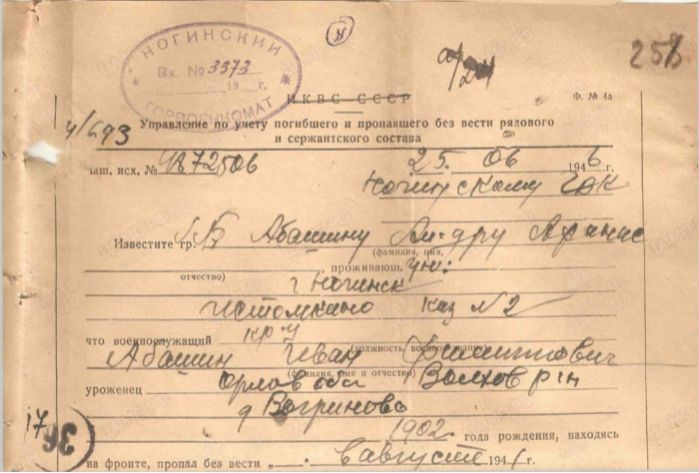 НОГИНСКИЙ
Вх. № 3373
19 г.
ГОРВОЕНКОМАТ
258
НКВС СССР
Ф. № 4а
4/693
Управление по учету погибшего и пропавшего без вести рядового
и сержантского состава
наш. исх. № 25. 06 1946 г.
Ногинскому ГВК
Известите гр. Абашину
(фамилия, имя,
отчество) проживающ.
г Ногинск
каз №2
что военнослужащий кр-ц
(должность, военное звание)
Абашин Иван Филиппович
(фамилия, имя и отчество)
уроженец Орлов обл Волхов р-н
д Вогриново
1902 года рождения, находясь
на фронте, пропал без вести „ . в августе 1941 г.
17
36